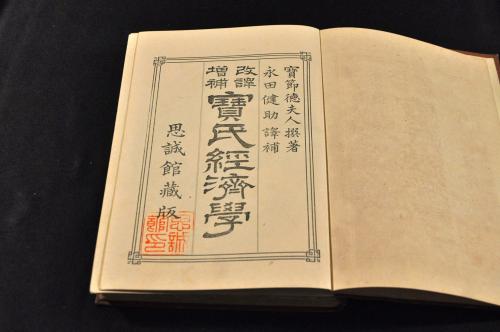 寶節德夫人撰著
永田健助譯補
改譯
增補
寶氏經濟學
思誠館藏版
思誠
館印